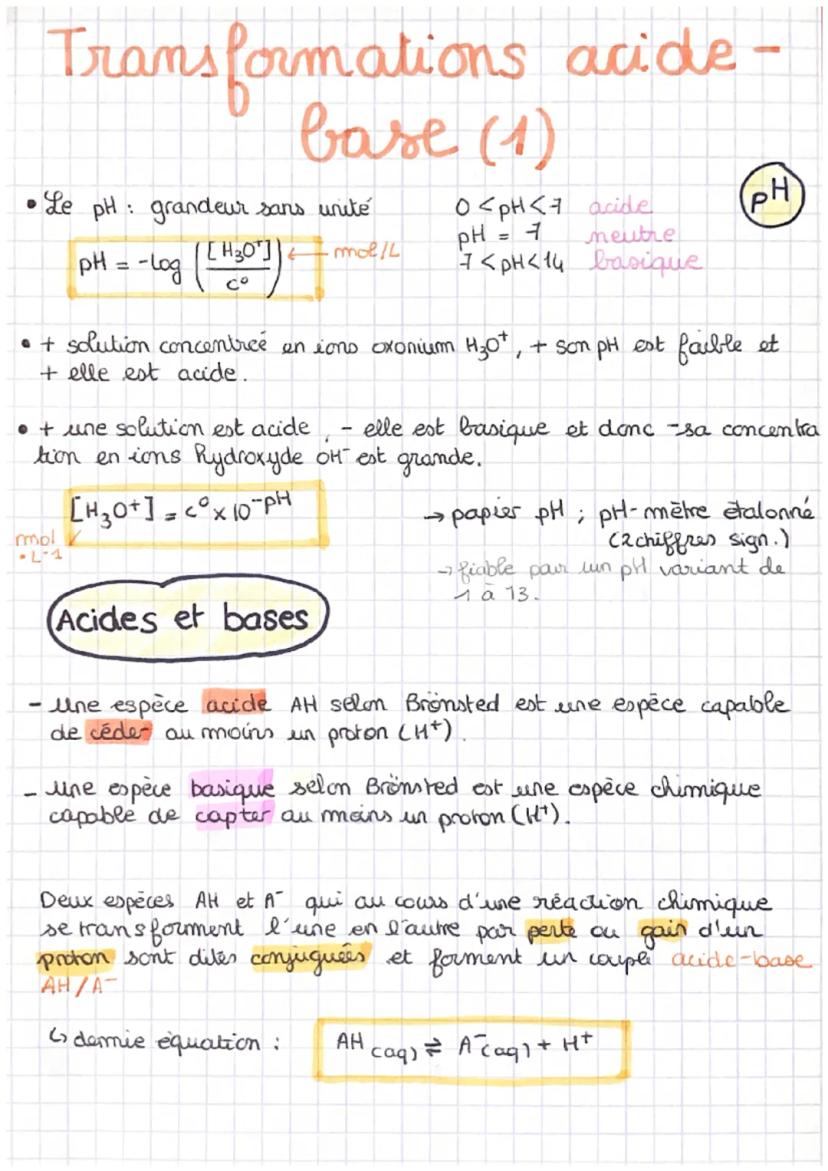 Transformations acide-
base (1)
pH
• Le pH : grandeur sans unité
pH = -log ([H3O+] / c°) ← mol/L
0 < pH < 7 acide
pH = 7 neutre
7 < pH < 14 basique
• + solution concentreé en ions oxonium H3O+, + son pH est faible et
+ elle est acide.
• + une solution est acide, - elle est basique et donc - sa concentra
tion en ions hydroxyde OH- est grande.
[H3O+] = c° x 10^-pH
mol
• L-1
→ papier pH ; pH-mètre étalonné
(2 chiffres sign.)
→ fiable pour un pH variant de
1 à 13.
Acides et bases
- une espèce acide AH selon Brönsted est une espèce capable
de céder au moins un proton (H+).
- une espèce basique selon Brönsted est une espèce chimique
capable de capter au moins un proton (H+).
Deux espèces AH et A- qui au cours d'une réaction chimique
se transforment l'une en l'autre par perte ou gain d'un
proton sont dites conjuguées et forment un couple acide-base
AH/A-
↳ demie équation :
AH (aq) ⇄ A-(aq) + H+